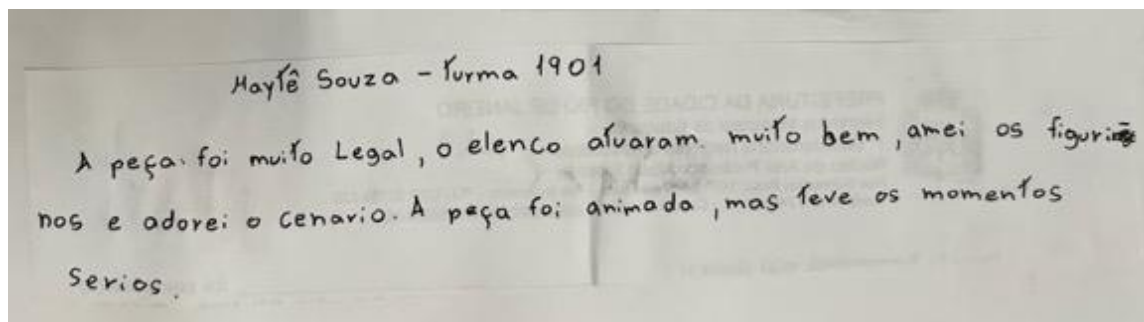 Maytê Souza - Turma 1901
A peça foi muito Legal, o elenco atuaram muito bem, amei os figuri
nos e adorei o cenario. A peça foi animada, mas teve os momentos
Serios.